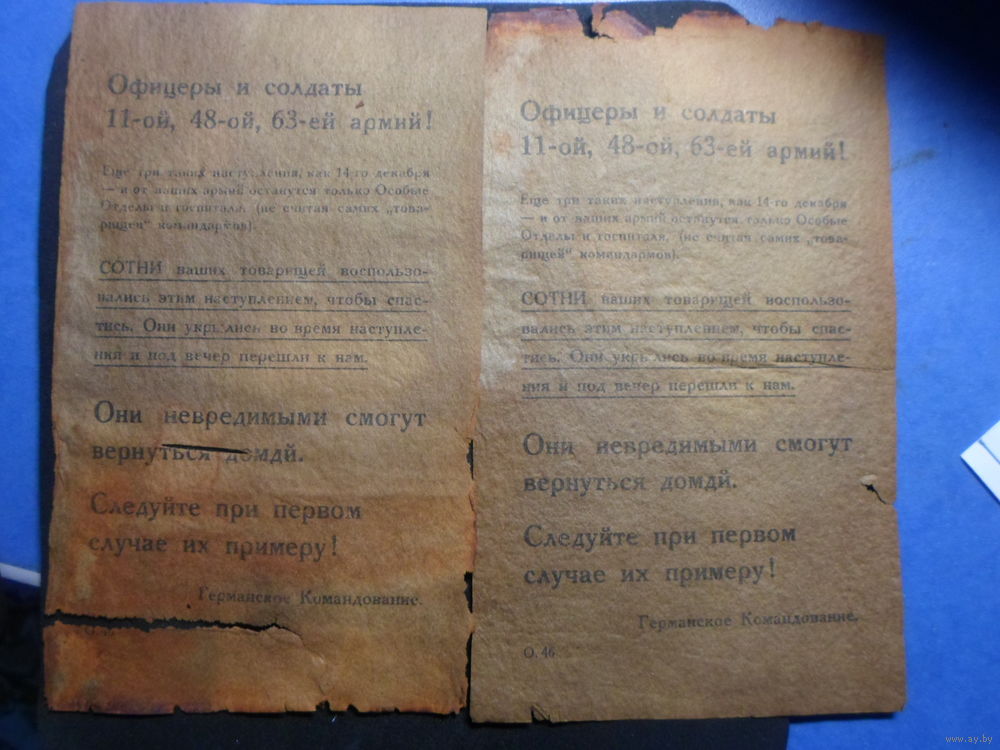 Офицеры и солдаты
11-ой, 48-ой, 63-ей армий!
Еще три таких наступления, как 14-го декабря
— и от ваших армий останутся только Особые
Отделы и госпиталя. (не считая самих „това-
рищей“ командармов).
СОТНИ ваших товарищей воспользо-
вались этим наступлением, чтобы спас-
тись. Они укрылись во время наступле-
ния и под вечер перешли к нам.
Они невредимыми смогут
вернуться домдй.
Следуйте при первом
случае их примеру!
Германское Командование.
О.
Офицеры и солдаты
11-ой, 48-ой, 63-ей армий!
Еще три таких наступления, как 14-го декабря
— и от ваших армий останутся только Особые
Отделы и госпиталя, (не считая самих „това-
рищей“ командармов).
СОТНИ ваших товарищей воспользо-
вались этим наступлением, чтобы спас-
тись. Они укрылись во время наступле-
ния и под вечер перешли к нам.
Они невредимыми смогут
вернуться домдй.
Следуйте при первом
случае их примеру!
Германское Командование.
О. 46
www.ay.by